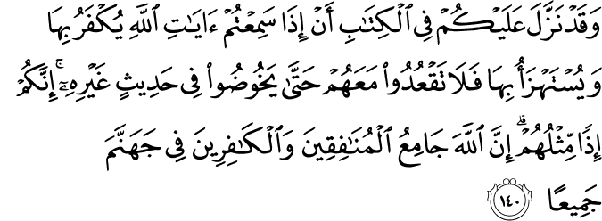 وَقَدْ نَزَّلَ عَلَيْكُمْ فِي الْكِتَٰبِ أَنْ إِذَا سَمِعْتُمْ ءَايَٰتِ اللَّهِ يُكْفَرُ بِهَا
وَيُسْتَهْزَأُ بِهَا فَلَا تَقْعُدُوا۟ مَعَهُمْ حَتَّىٰ يَخُوضُوا۟ فِي حَدِيثٍ غَيْرِهِۦٓ ۚ إِنَّكُمْ
إِذًا مِّثْلُهُمْ ۗ إِنَّ اللَّهَ جَامِعُ الْمُنَٰفِقِينَ وَالْكَٰفِرِينَ فِي جَهَنَّمَ
جَمِيعًا ١٤٠